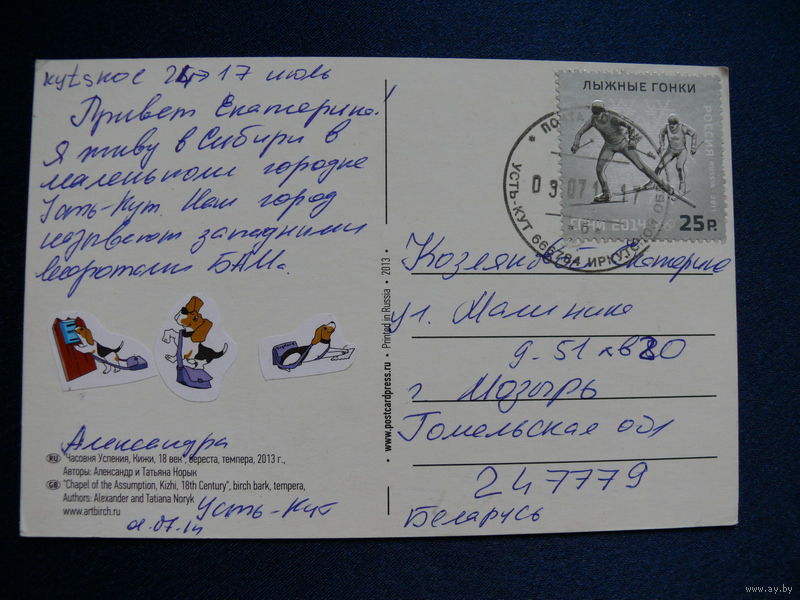 17 июль
Привет Екатерина.
Я живу в Сибири в
маленьком городке
Усть-Кут. Наш город
называют западными
воротами БАМа.
Александра
RU "Часовня Успения, Кижи, 18 век", береста, темпера, 2013 г.,
Авторы: Александр и Татьяна Норык
GB "Chapel of the Assumption, Kizhi, 18th Century", birch bark, tempera,
Authors: Alexander and Tatiana Noryk
www.artbirch.ru
Усть-Кут
07.14
www.postcardpress.ru • Printed in Russia • 2013 •
ЛЫЖНЫЕ ГОНКИ
РОССИЯ
25 Р.
ПОЧТА
УСТЬ-КУТ ИРКУТСКОЙ ОБЛ
Екатерина
ул. Малинина
д. 51 кв 80
г. Мозырь
Гомельская обл
247779
Беларусь
www.ay.by